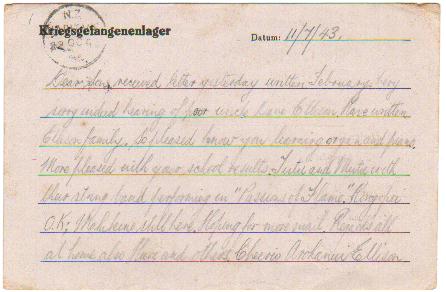 N.Z.
Kriegsgefangenenlager
Datum: 11/7/43.
Dear Son, received letter yesterday written February. Very
sorry indeed hearing of poor uncle have Olsen. Have written
Olsen family, so pleased know you learning organ and piano.
More pleased with your school results. Tutu and with
their string band performing in "Passions of Flame".
O.K; still here. Hoping for more mail. all
at home also and others. Cheerio Ellison